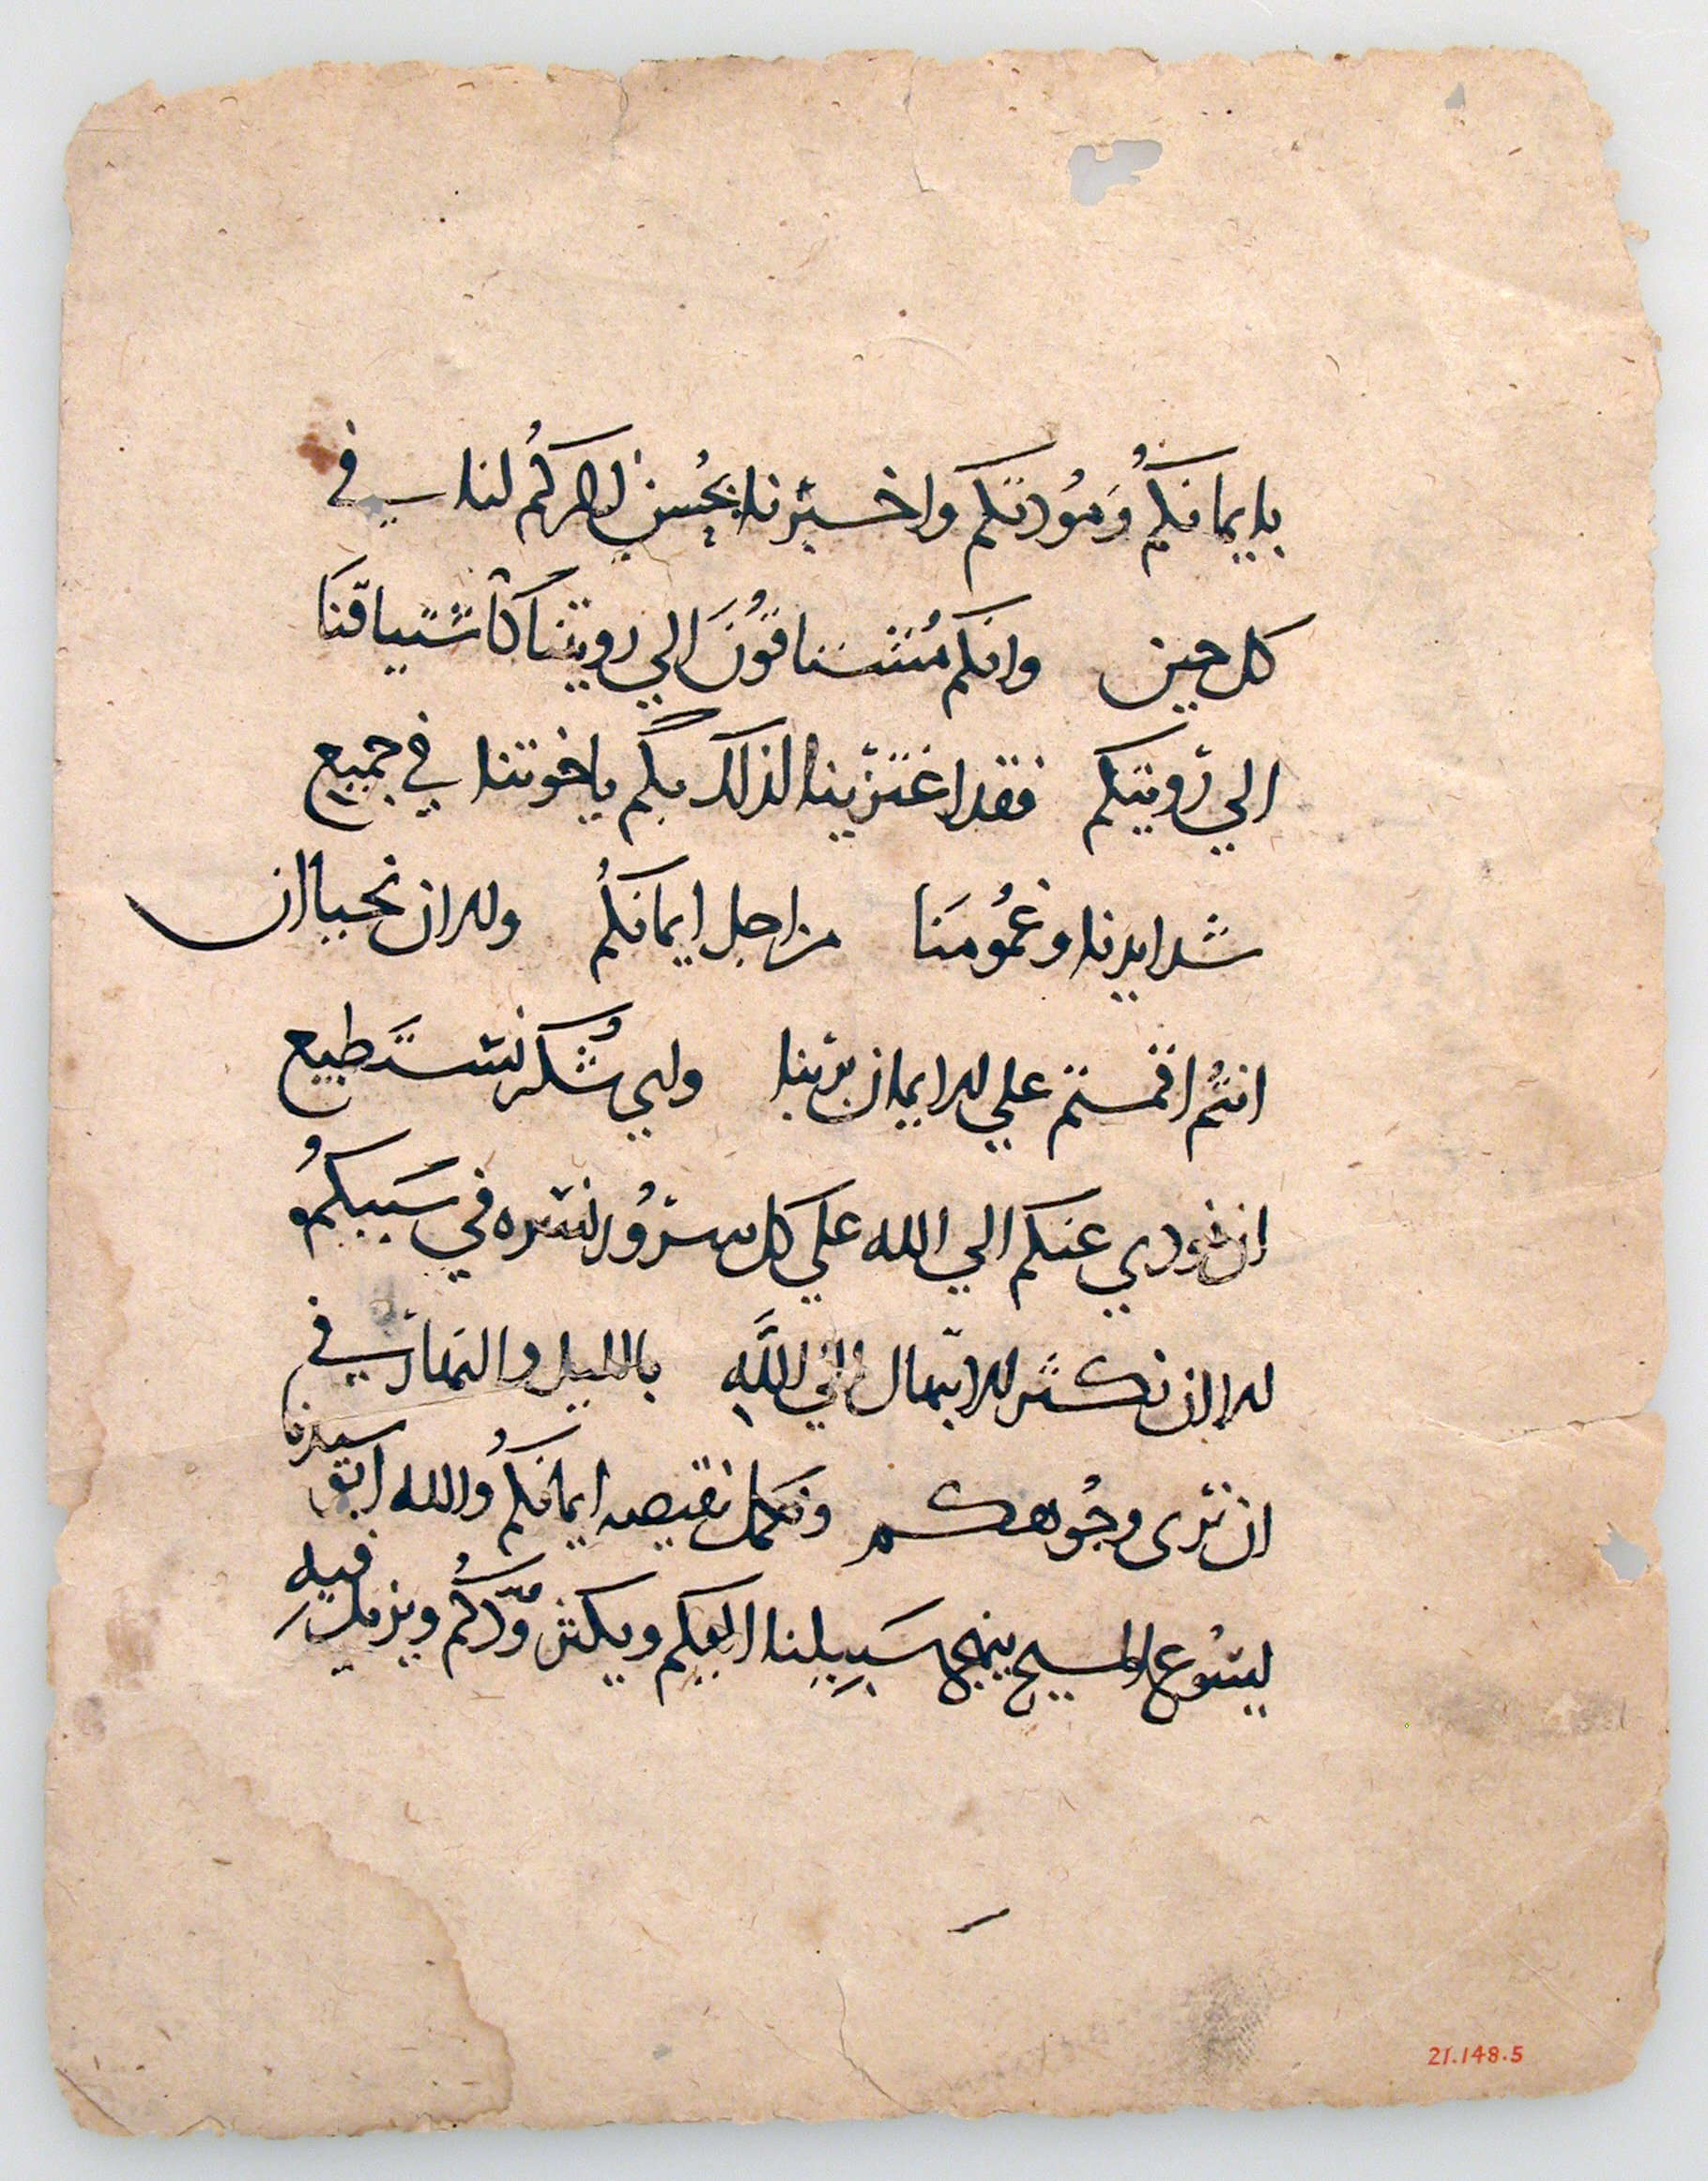 بايمانكم ومُودتكم واخبرنا بحُسن ذكركم لنا في
كل حين وانكم مُشتاقُونَ الي رويتنا كاشتياقنَا
الي رويتكم فقد اعتزينا لذلك بكم ياخوتنا في جميع
شدايدنا وغمُومَنا من اجل ايمانكُم والان نحيا ان
انتُم اقمتم علي الايمان بربنا واي شُكر نستطيع
ان نودي عنكم الي الله علي كل سرُور نسره في سَببكمُ
الا ان نكثر الابتهال الي اللَّهِ بالليل والنهار في
ان نرى وجُوهكم ونكمل نقيصه ايمانكُم والله ابونا سيدنا
يسُوع المسيح ينهج سَبِيلنا اليكم ويكثر ودّكُم ويزيد فيهِ
21.148.5